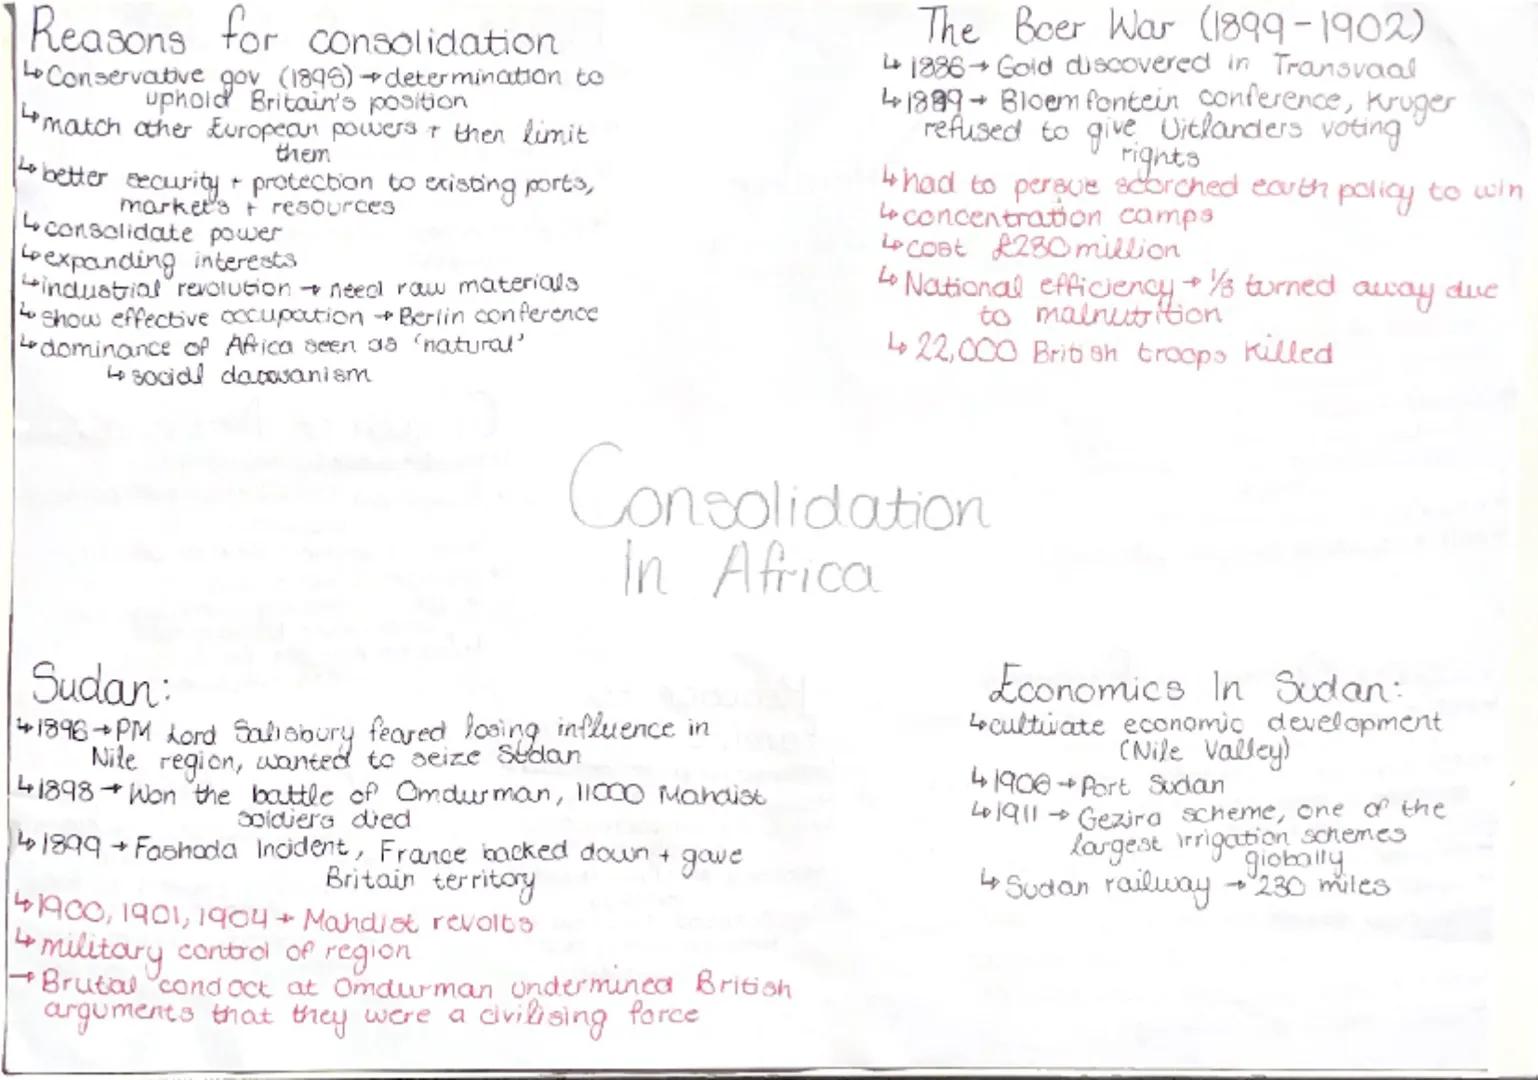 Reasons for consolidation
↳Conservative gov (1895)→determination to
uphold Britain's position
↳match other European powers + then limit
them
↳better security + protection to existing ports,
markets + resources
↳consolidate power
↳expanding interests
↳industrial revolution → need raw materials
↳show effective occupation → Berlin conference
↳dominance of Africa seen as 'natural'
↳social darwanism
The Boer War (1899-1902)
↳1886→ Gold discovered in Transvaal
↳1899→ Bloemfontein conference, Kruger
refused to give Uitlanders voting
rights
↳had to persue scorched earth policy to win
↳concentration camps
↳cost £230million
↳National efficiency → ⅓ turned away due
to malnutrition
↳22,000 British troops killed
Consolidation
In Africa
Sudan:
↳1896→PM Lord Salisbury feared losing influence in
Nile region, wanted to seize Sudan
↳1898→Won the battle of Omdurman, 11000 Mahdist
soldiers died
↳1899→Fashoda Incident, France backed down + gave
Britain territory
↳1900, 1901, 1904→ Mahdist revolts
↳military control of region
→Brutal conduct at Omdurman undermined British
arguments that they were a civilising force
Economics In Sudan:
↳cultivate economic development
(Nile Valley)
↳1906→Port Sudan
↳1911→ Gezira scheme, one of the
largest irrigation schemes
globally
↳Sudan railway → 230 miles